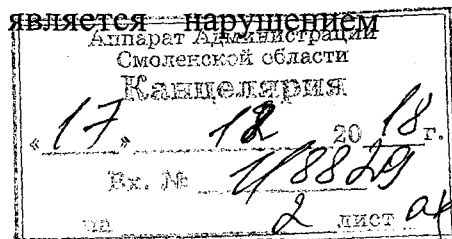 является нарушением
Аппарат Администрации
Смоленской области
Канцелярия
«17» 12 2018г.
Вх. № 1/8829
на 2 лист